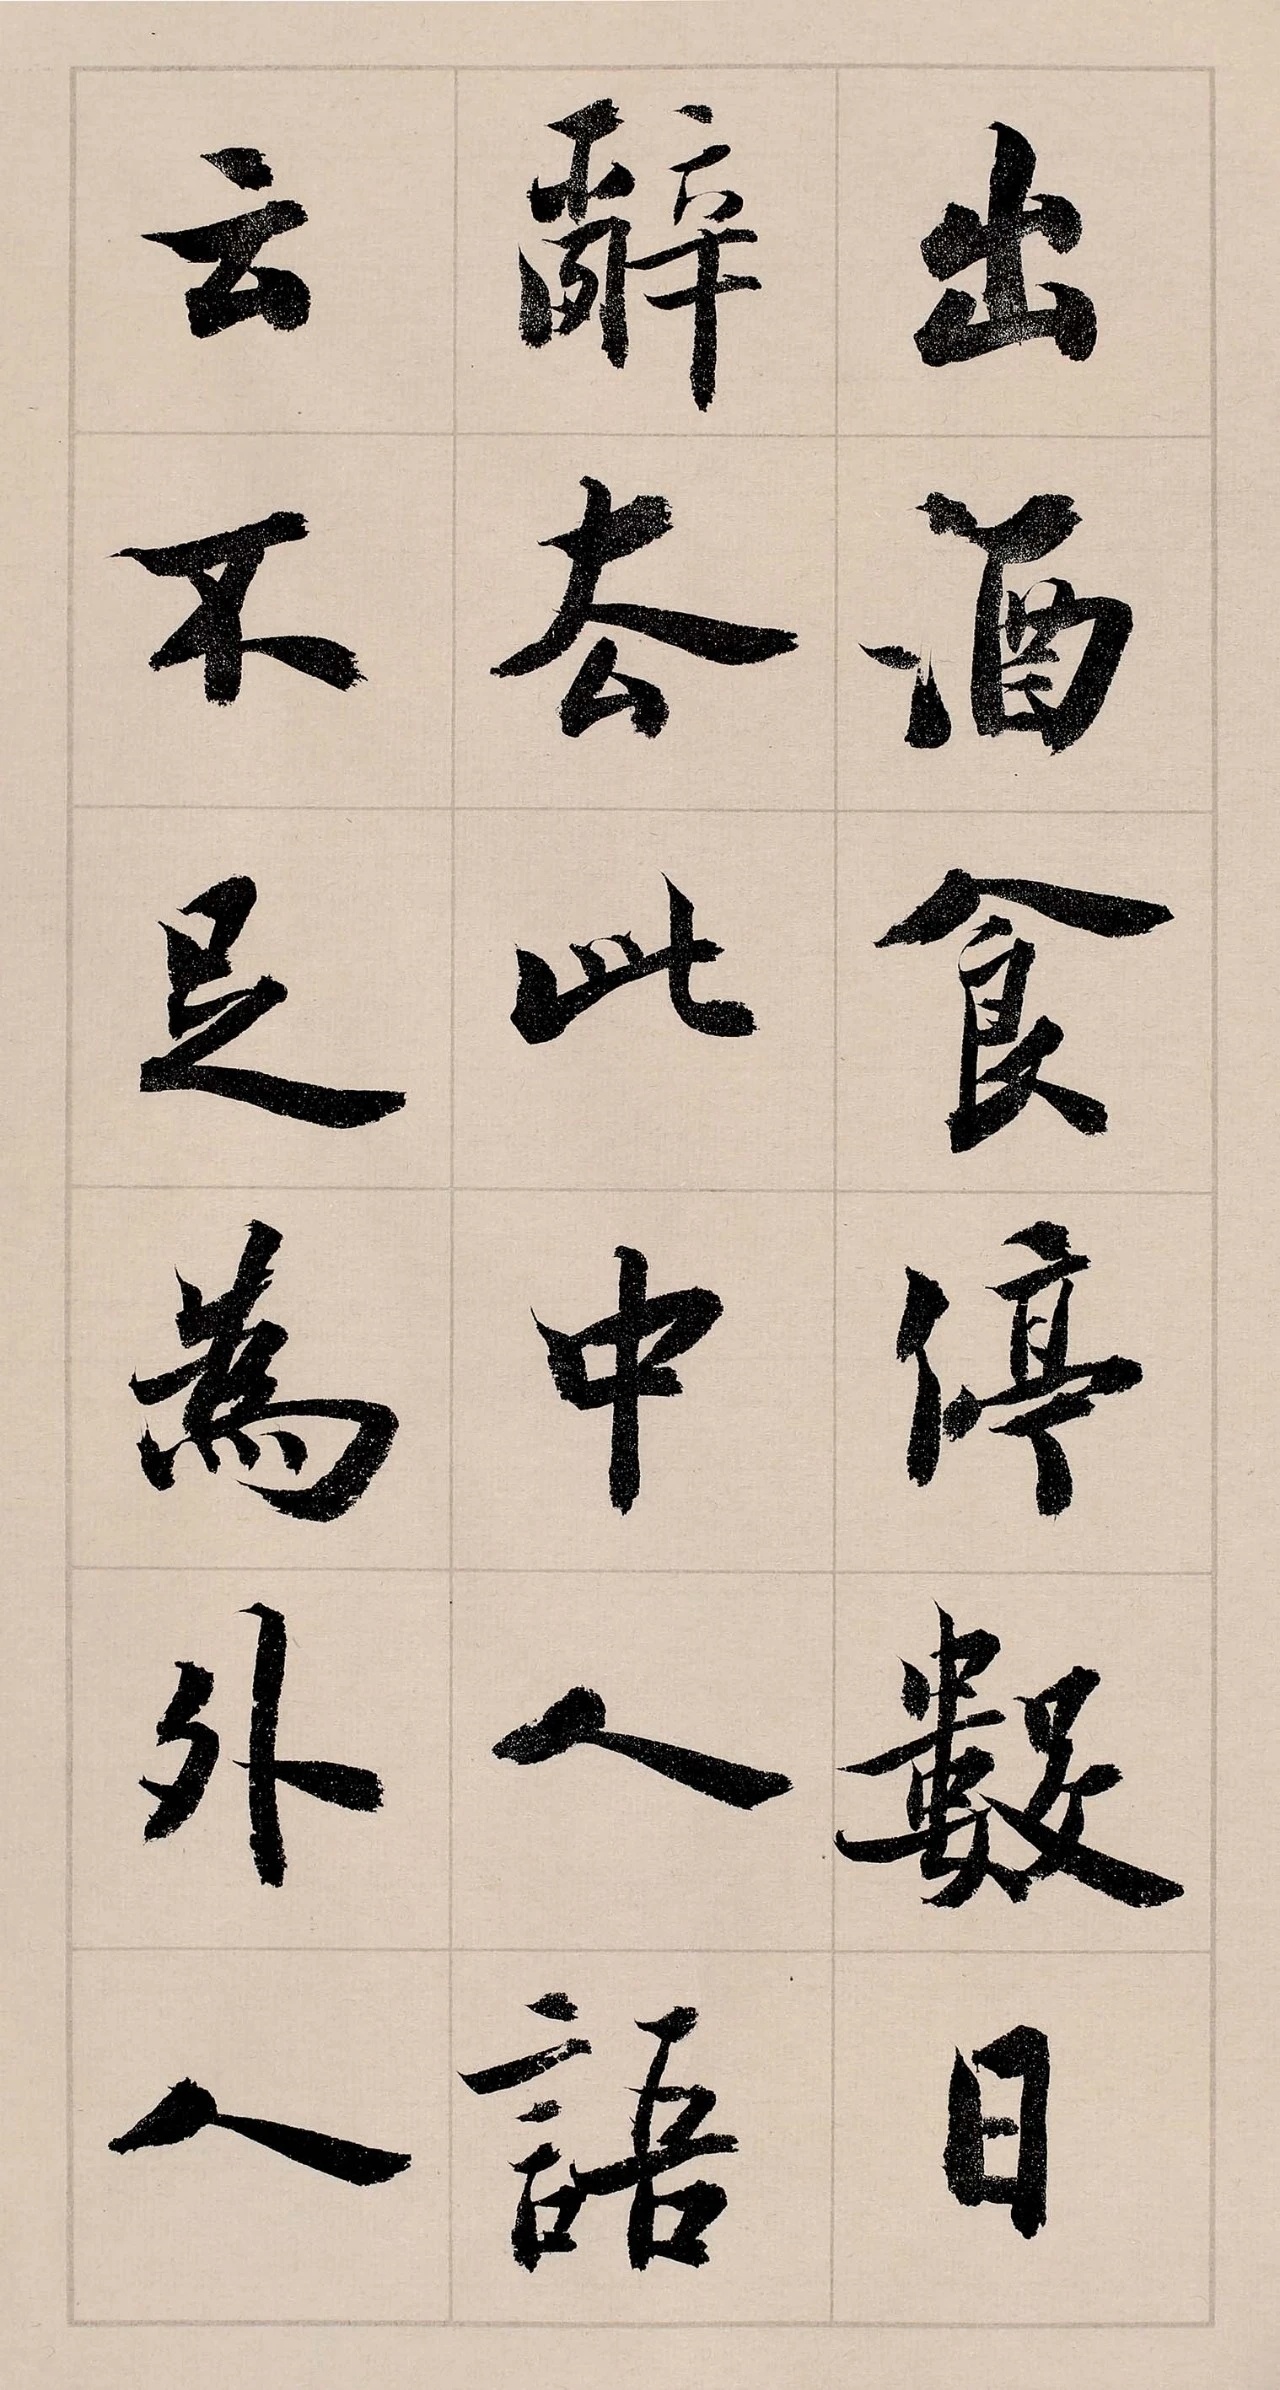 出酒食停數日
辭去此中人語
云不足為外人